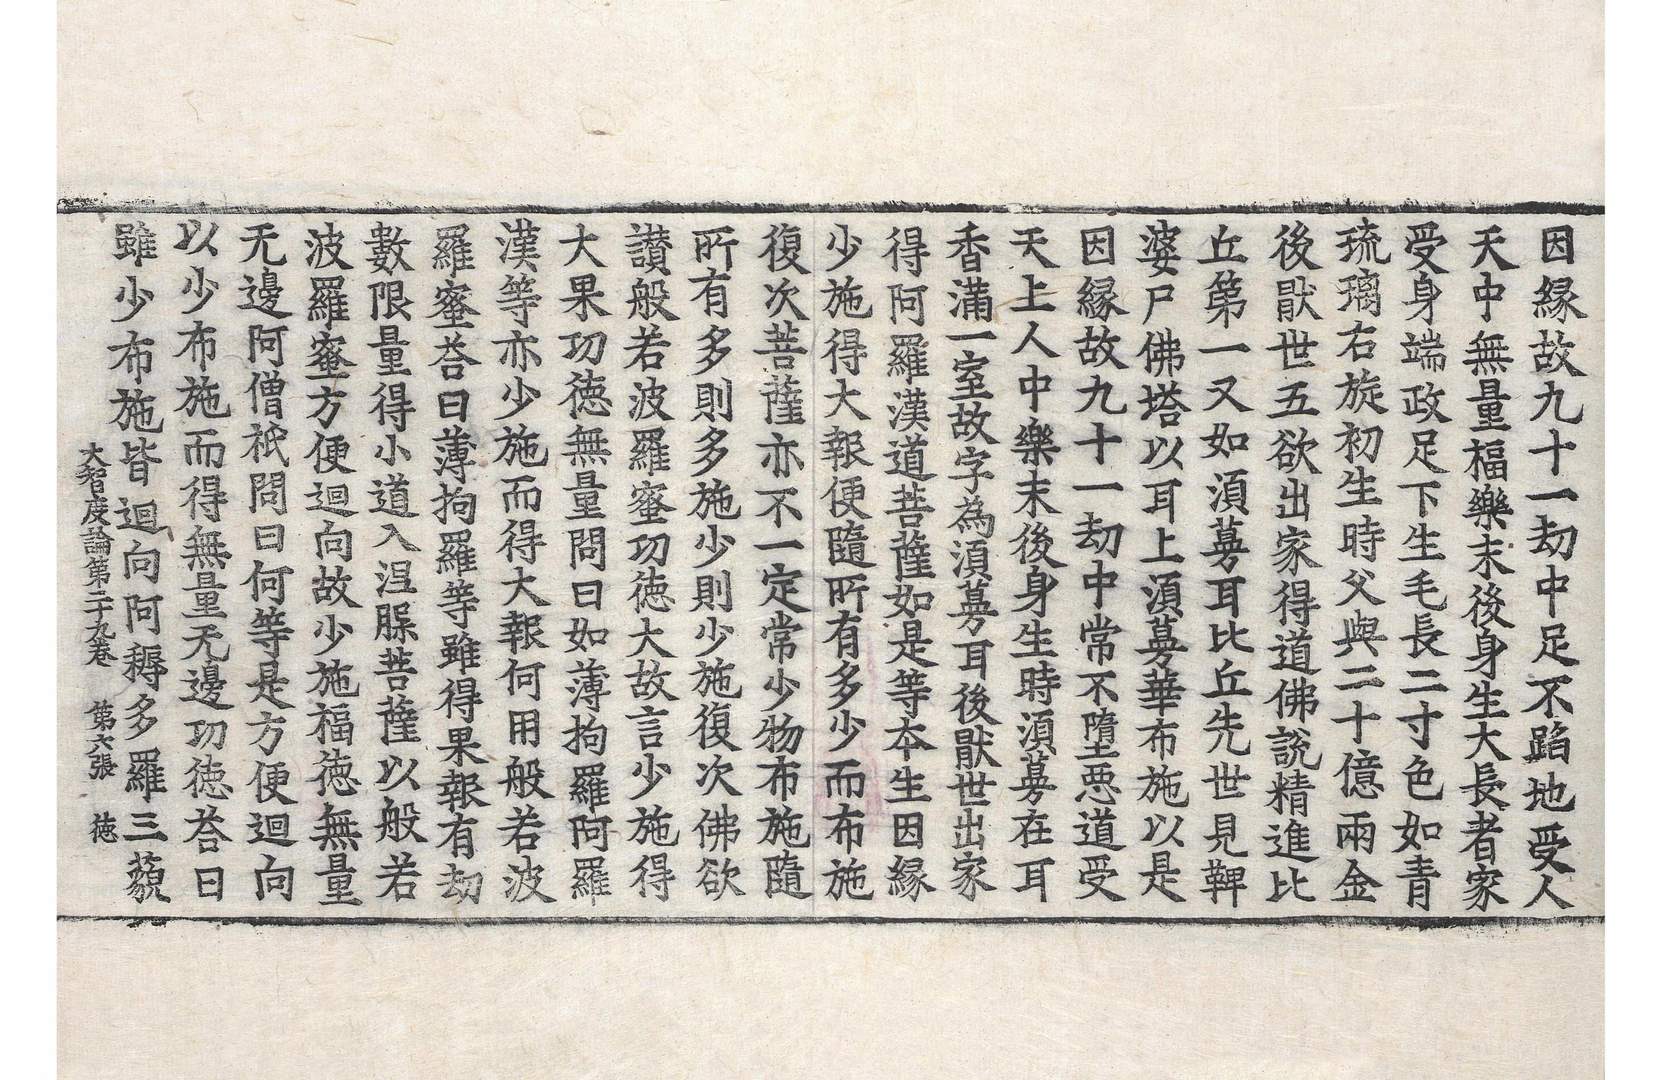 因縁故九十一劫中足不蹈地受人
天中無量福樂末後身生大長者家
受身端政足下生毛長二寸色如青
琉璃右旋初生時父與二十億兩金
後猒世五欲出家得道佛說精進比
丘第一又如湏蔓耳比丘先世見鞞
婆尸佛塔以耳上湏蔓華布施以是
因縁故九十一劫中常不墮惡道受
天上人中樂末後身生時湏蔓在耳
香滿一室故字為湏蔓耳後猒世出家
得阿羅漢道菩薩如是等夲生因縁
少施得大報便隨所有多少而布施
復次菩薩亦不一定常少物布施隨
所有多則多施少則少施復次佛欲
讃般若波羅蜜功徳大故言少施得
大果功徳無量問曰如薄拘羅阿羅
漢等亦少施而得大報何用般若波
羅蜜荅曰薄拘羅等雖得果報有劫
數限量得小道入涅槃菩薩以般若
波羅蜜方便迴向故少施福徳無量
无邊阿僧祇問曰何等是方便迴向
以少布施而得無量无邊功徳荅曰
雖少布施皆迴向阿耨多羅三藐
大智度論第二十九卷　第六張　徳